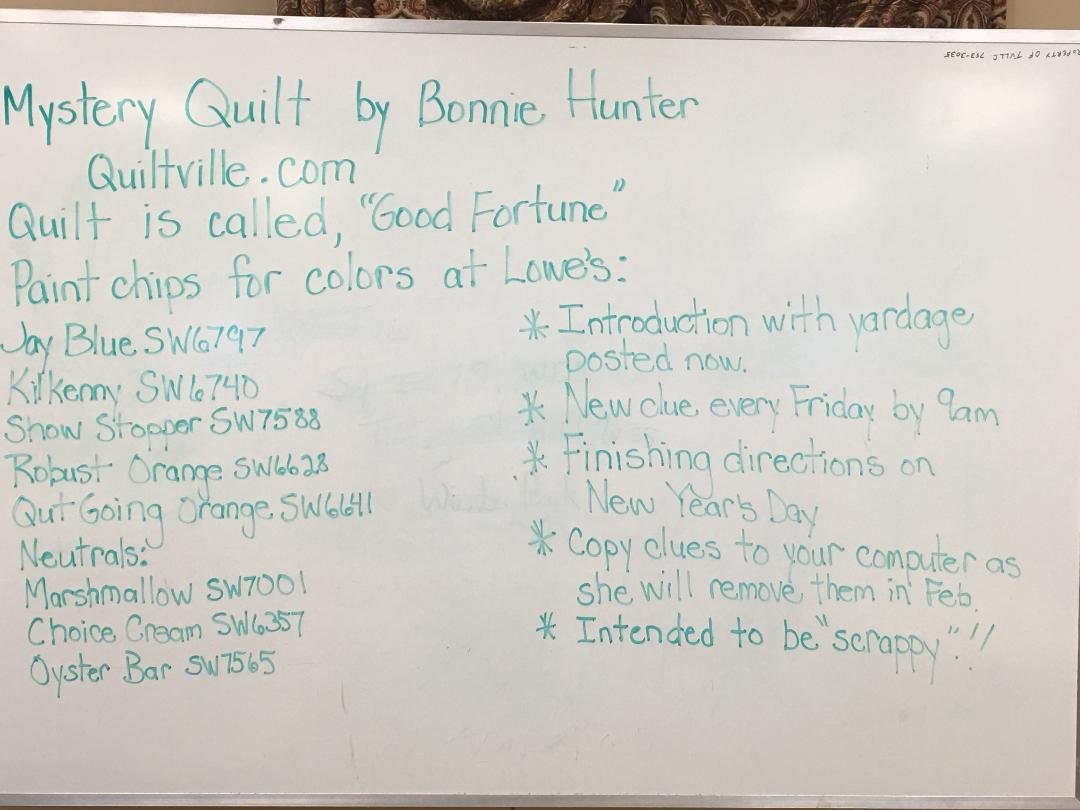 PROPERTY OF TVLLC 753-3035
Mystery Quilt by Bonnie Hunter
Quiltville.com
Quilt is called, "Good Fortune"
Paint chips for colors at Lowe's:
Jay Blue SW6797
Kilkenny SW6740
Show Stopper SW7588
Robust Orange SW6628
OutGoing Orange SW6641
Neutrals:
Marshmallow SW7001
Choice Cream SW6357
Oyster Bar SW7565
* Introduction with yardage
posted now.
* New clue every Friday by 9am
* Finishing directions on
New Year's Day
* Copy clues to your computer as
she will remove them in Feb.
* Intended to be "scrappy".!!